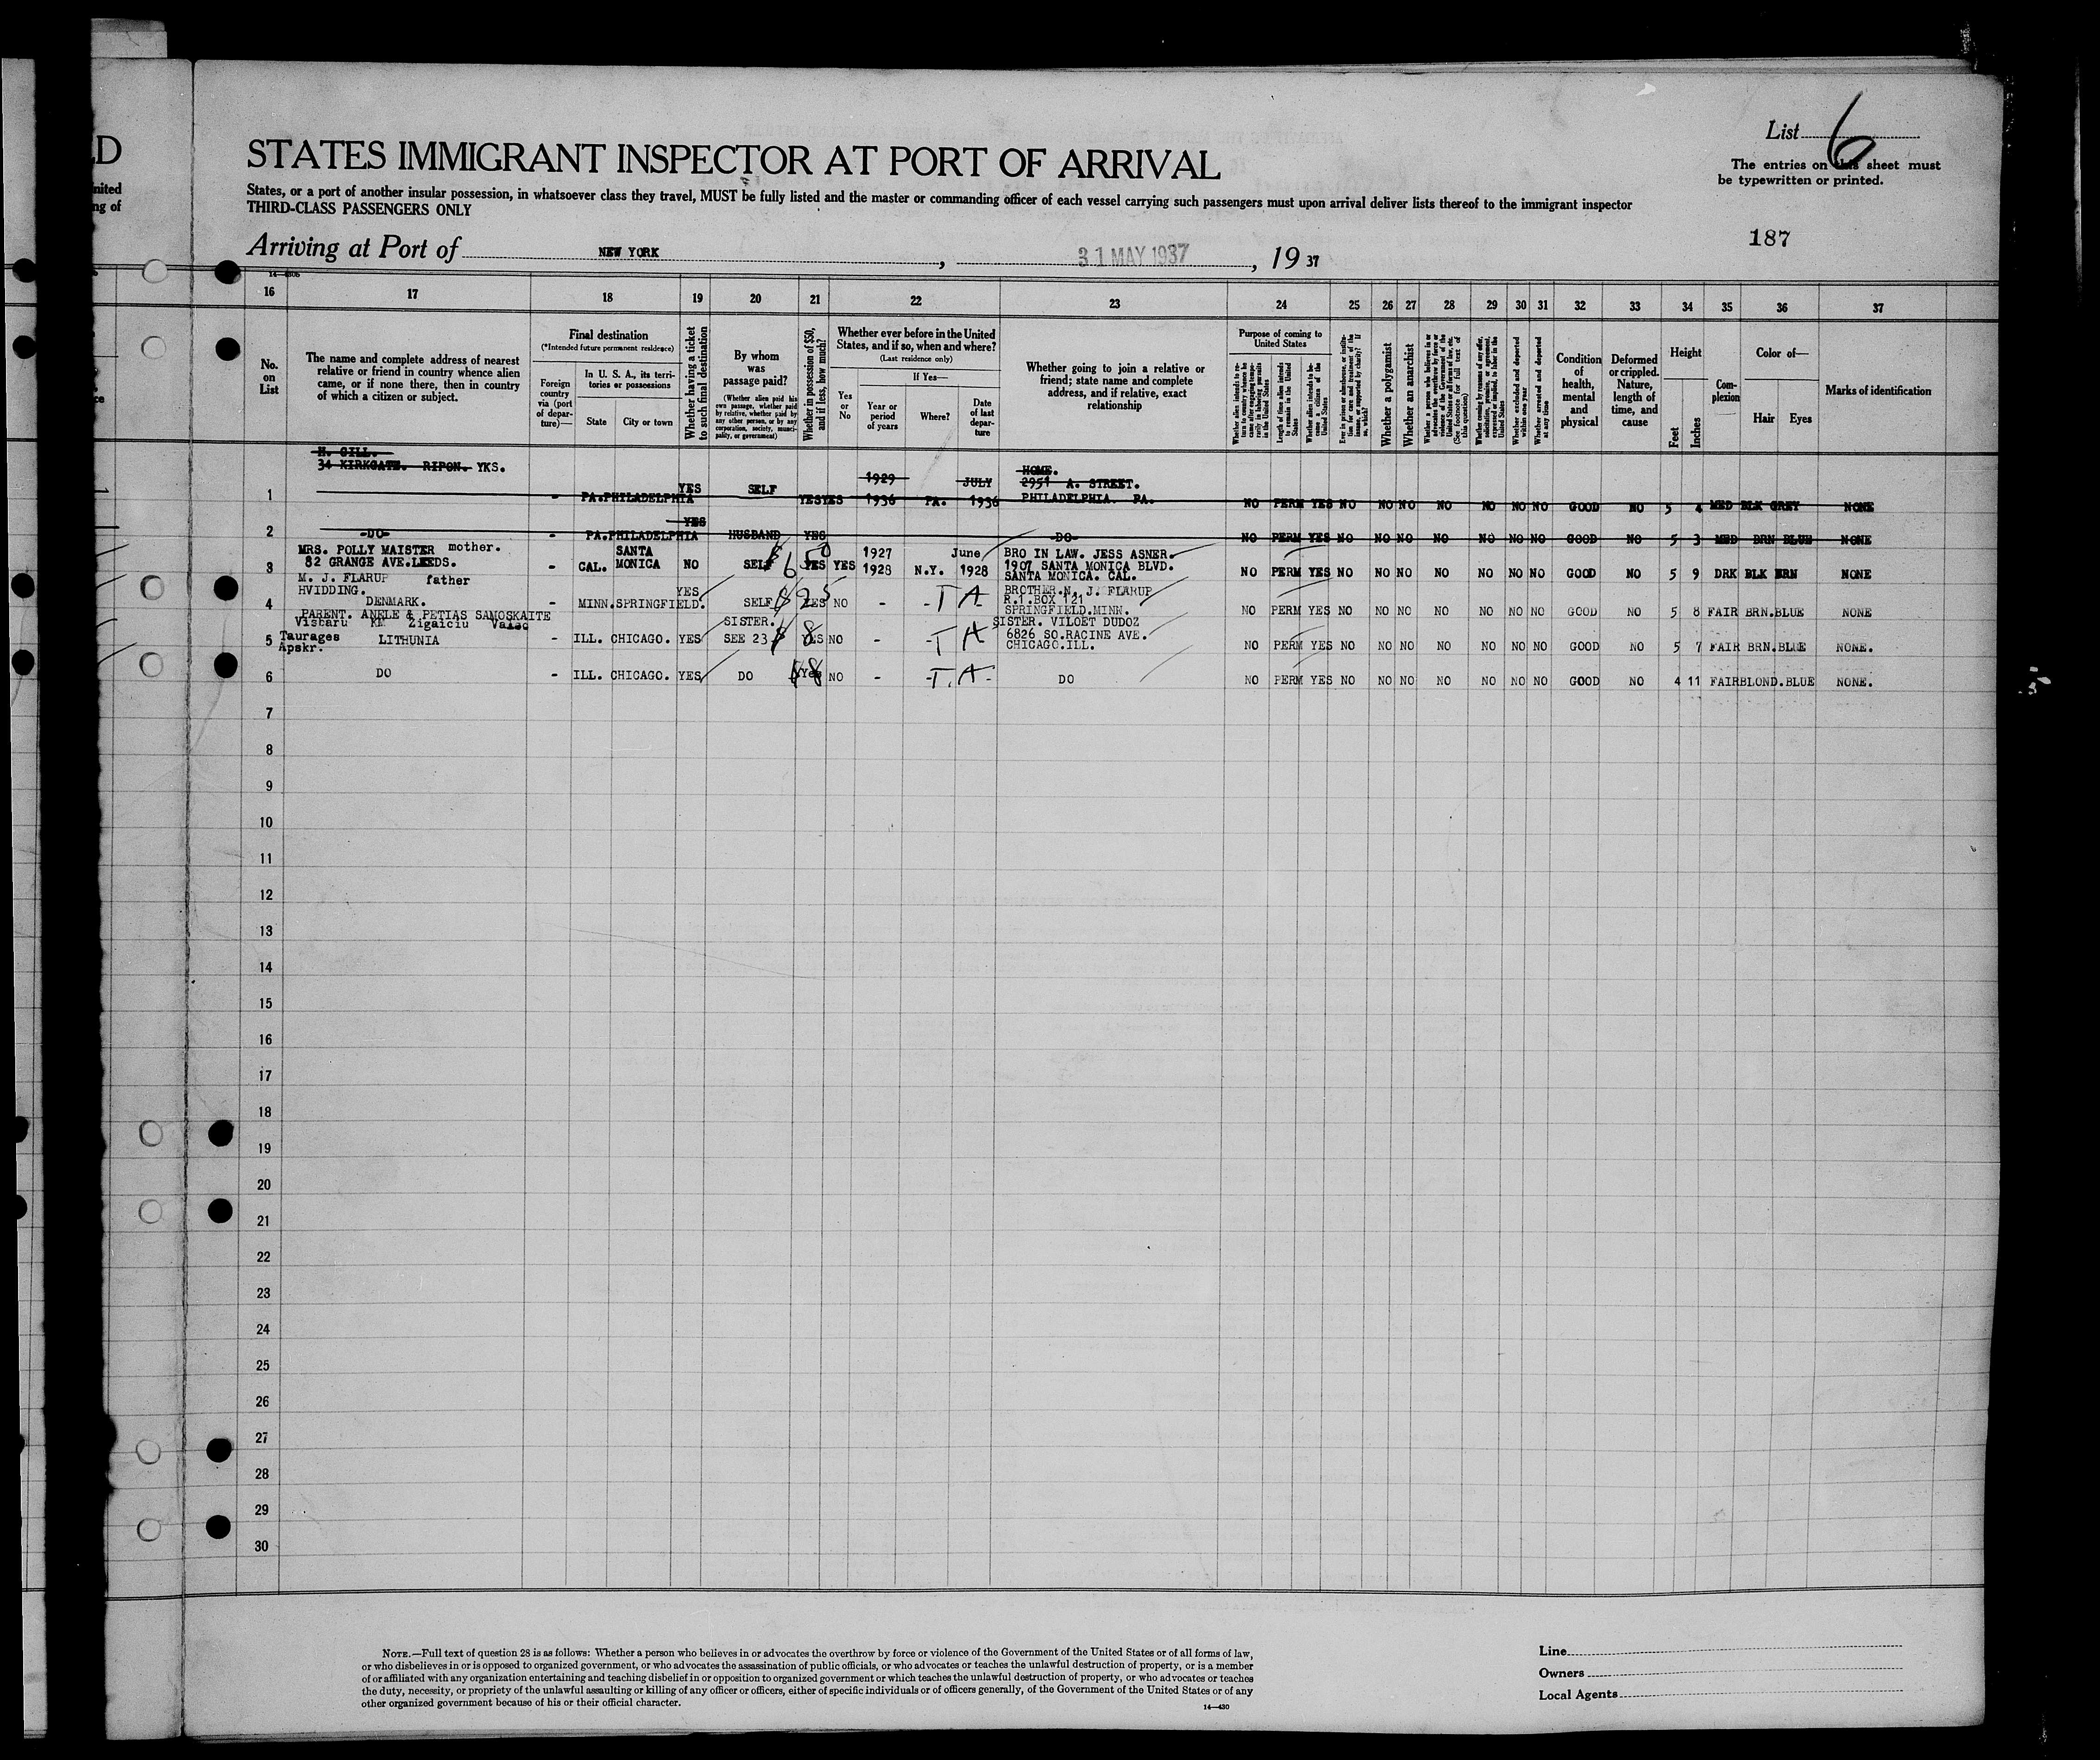 LD
nited
ng of
List 6
STATES IMMIGRANT INSPECTOR AT PORT OF ARRIVAL
The entries on this sheet must
be typewritten or printed.
States, or a port of another insular possession, in whatsoever class they travel, MUST be fully listed and the master or commanding officer of each vessel carrying such passengers must upon arrival deliver lists thereof to the immigrant inspector
THIRD-CLASS PASSENGERS ONLY
187
Arriving at Port of NEW YORK, 31 MAY 1937, 19 37
16 17 18 19 20 21 22 23 24 25 26 27 28 29 30 31 32 33 34 35 36 37
No. on List
The name and complete address of nearest relative or friend in country whence alien came, or if none there, then in country of which a citizen or subject.
Final destination
(*Intended future permanent residence)
Foreign country via (port of departure)—
In U. S. A., its territories or possessions
State City or town
Whether having a ticket to such final destination
By whom was passage paid?
(Whether alien paid his own passage, whether paid by relative, whether paid by any other person, or by any corporation, society, municipality, or government)
Whether in possession of $50, and if less, how much?
Whether ever before in the United States, and if so, when and where?
(Last residence only)
Yes or No
If Yes—
Year or period of years
Where?
Date of last departure
Whether going to join a relative or friend; state name and complete address, and if relative, exact relationship
Purpose of coming to United States
Length of time alien intends to remain in the United States
Whether alien intends to become a citizen of the United States
Whether a polygamist
Whether an anarchist
Whether excluded and deported within one year
Whether arrested and deported at any time
Condition of health, mental and physical
Deformed or crippled. Nature, length of time, and cause
Height
Feet Inches
Complexion
Color of—
Hair Eyes
Marks of identification
H. GILL.
34 KIRKGATE. RIPON. YKS.
1 - PA. PHILADELPHIA YES SELF YES YES 1929 1936 PA. JULY 1936 HOME. 2951 A. STREET. PHILADELPHIA. PA. NO PERM YES NO NO NO NO NO NO NO GOOD NO 5 4 MED BLK GREY NONE
2 -DO- - PA. PHILADELPHIA YES HUSBAND YES -DO- NO PERM YES NO NO NO NO NO NO NO GOOD NO 5 3 MED BRN BLUE NONE
MRS. POLLY MAISTER mother.
82 GRANGE AVE. LEEDS.
3 - CAL. SANTA MONICA NO SELF $650 YES YES 1927 1928 N.Y. June 1928 BRO IN LAW. JESS ASNER. 1907 SANTA MONICA BLVD. SANTA MONICA. CAL. NO PERM YES NO NO NO NO NO NO NO GOOD NO 5 9 DRK BLK BRN NONE
M. J. FLARUP father
HVIDDING.
DENMARK.
4 - MINN. SPRINGFIELD. YES SELF $25 YES NO - - TA BROTHER. N. J. FLARUP R.1. BOX 121 SPRINGFIELD. MINN. NO PERM YES NO NO NO NO NO NO NO GOOD NO 5 8 FAIR BRN. BLUE NONE
PARENT. ANELE & PETIAS SAMOSKAITE
Zigaiciu
Taurages
Apskr. LITHUNIA
5 - ILL. CHICAGO. YES SISTER. SEE 23 $8 YES NO - - TA SISTER. VILOET DUDOZ 6826 SO. RACINE AVE. CHICAGO. ILL. NO PERM YES NO NO NO NO NO NO NO GOOD NO 5 7 FAIR BRN. BLUE NONE.
6 DO - ILL. CHICAGO. YES DO $8 Yes NO - -T.A- DO NO PERM YES NO NO NO NO NO NO NO GOOD NO 4 11 FAIR BLOND. BLUE NONE.
7
8
9
10
11
12
13
14
15
16
17
18
19
20
21
22
23
24
25
26
27
28
29
30
NOTE.—Full text of question 28 is as follows: Whether a person who believes in or advocates the overthrow by force or violence of the Government of the United States or of all forms of law,
or who disbelieves in or is opposed to organized government, or who advocates the assassination of public officials, or who advocates or teaches the unlawful destruction of property, or is a member
of or affiliated with any organization entertaining and teaching disbelief in or opposition to organized government or which teaches the unlawful destruction of property, or who advocates or teaches
the duty, necessity, or propriety of the unlawful assaulting or killing of any officer or officers, either of specific individuals or of officers generally, of the Government of the United States or of any
other organized government because of his or their official character.
14—430
Line
Owners
Local Agents